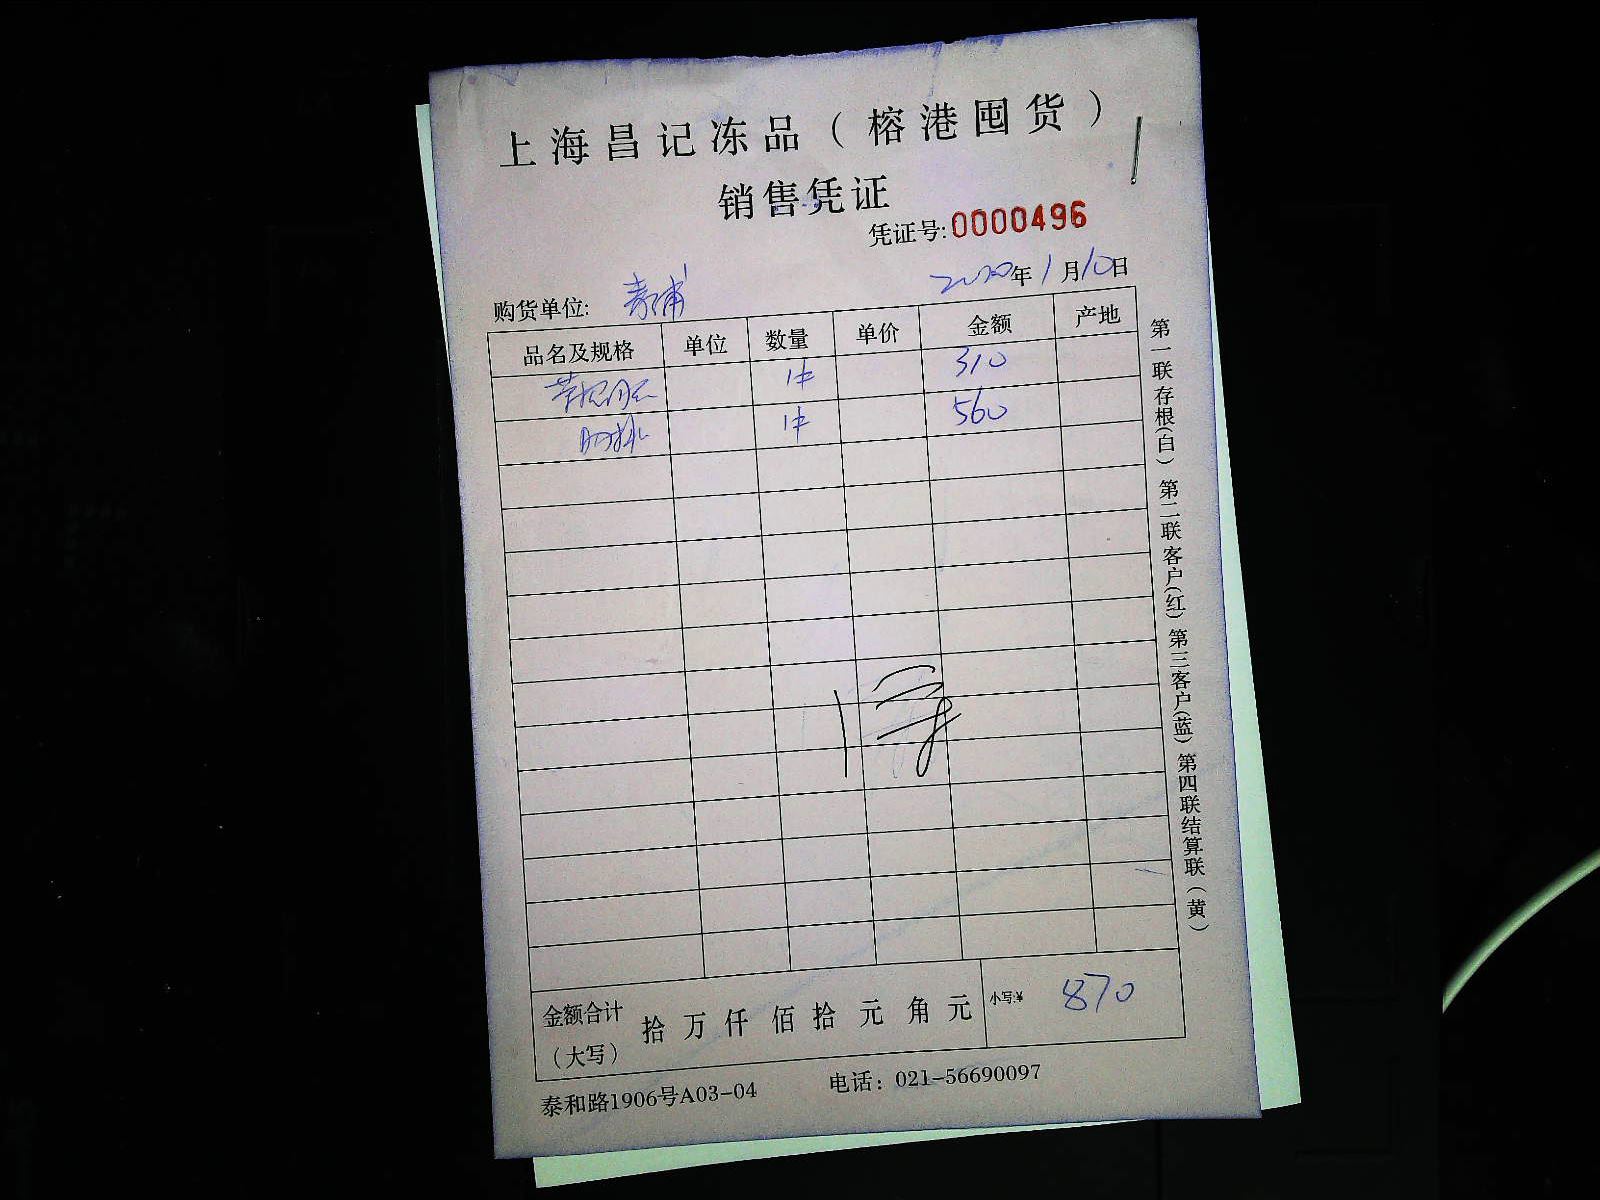 上海昌记冻品（榕港囤货）
销售凭证
凭证号:0000496
2020年1月10日
购货单位: 青浦
品名及规格 单位 数量 单价 金额 产地
1件 310
肋排 1件 560
金额合计（大写） 拾 万 仟 佰 拾 元 角 元 小写:¥ 870
泰和路1906号A03-04 电话：021-56690097
第一联存根(白) 第二联客户(红) 第三客户(蓝) 第四联结算联(黄)